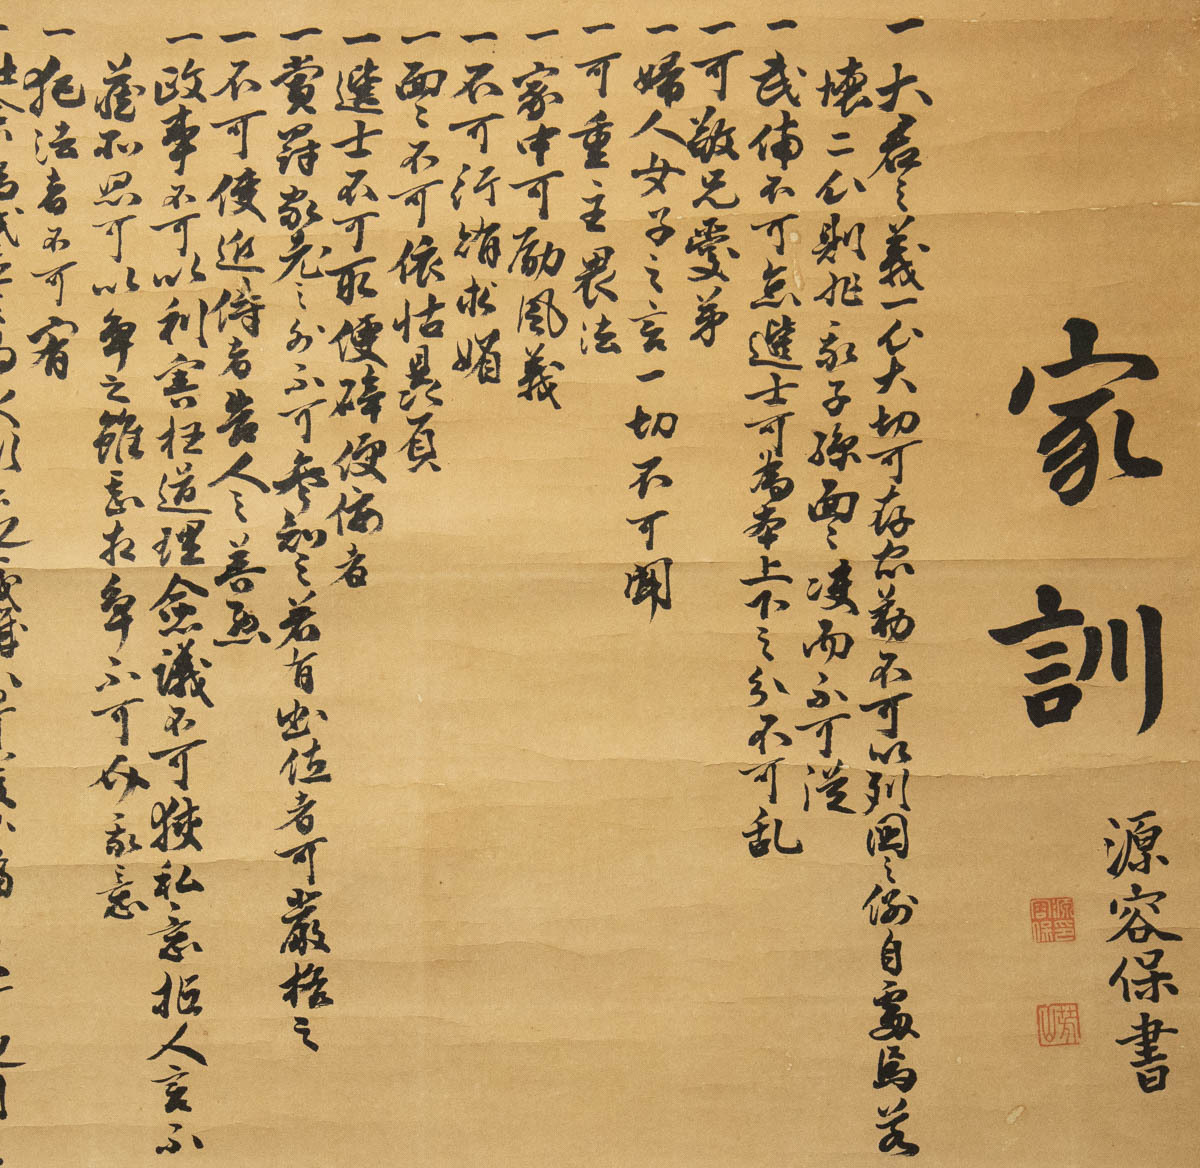 家訓
源容保書
源印容保
芳山
一大君之義一心大切可存忠勤不可以列国之例自處焉若
懐二心則非我子孫面々決而不可従
一武備不可怠選士可為本上下之分不可乱
一可敬兄愛弟
一婦人女子之言一切不可聞
一可重主畏法
一家中可励風義
一不可行賄求媚
一面々不可依怙贔屓
一選士不可取便辟便佞者
一賞罸家老之外不可参知之若有出位者可厳格之
一不可使近侍者告人之善悪
一政事不可以利害枉道理僉議不可挟私意拒人言不
蔵所思可以争之雖甚相争不可介我意
一犯法者不可宥